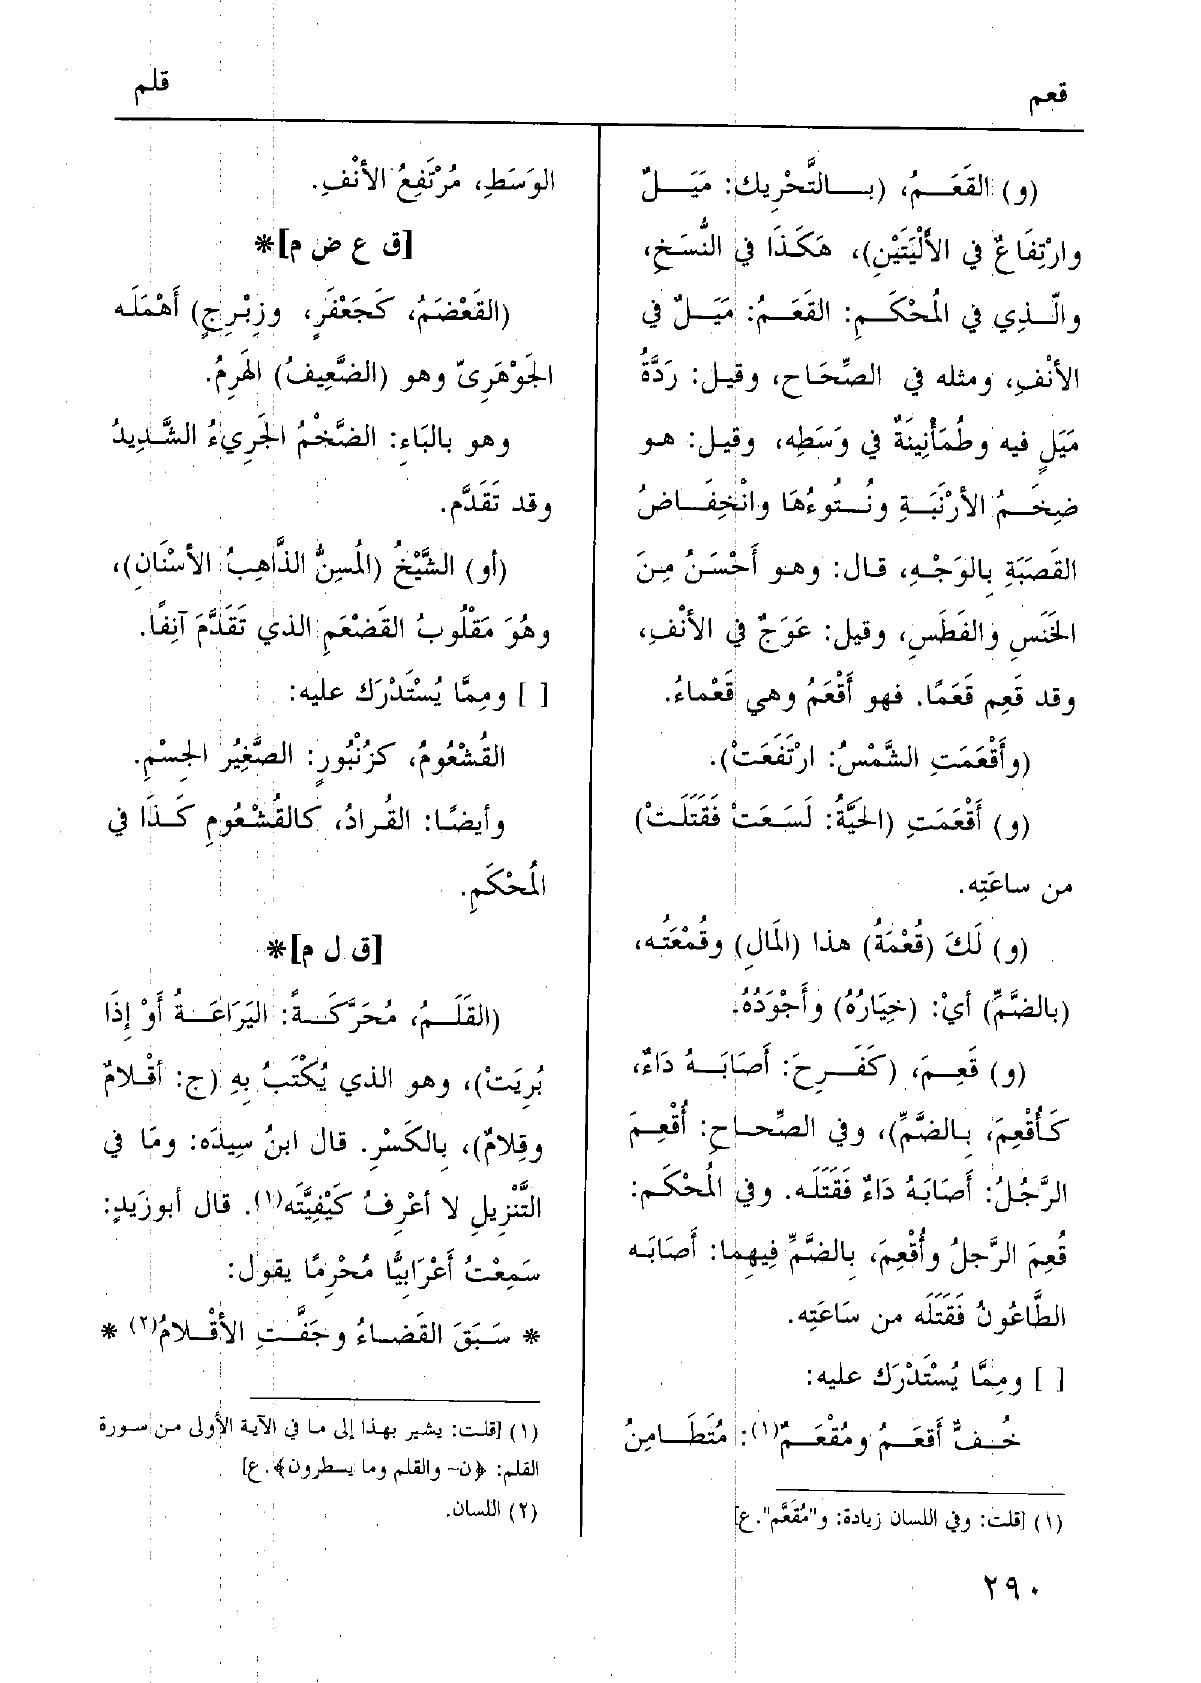 قعم
قلم
(و) القَعَـــمُ، (بـــالتَّحْرِيك: مَيَـــلٌ
وارْتِفَاعٌ في الأَلْيَتَيْنِ)، هَكَذَا في النُّسَخِ،
والَّـــذِي في المُحْكَـــمِ: القَعَمُ: مَيَـــلٌ في
الأنْفِ، ومثله في الصِّحَاح، وقيل: رَدَّةُ
مَيَلٍ فيه وطُمَأْنِينَةٌ في وَسَطِه، وقيل: هـو
ضِخَـــمُ الأَرْنَبَـــةِ ونُـــتُوءُهَا وانْخِفَـــاضُ
القَصَبَةِ بِالوَجْـهِ، قـال: وهـو أَحْسَنُ مِـنَ
الخَنَسِ والفَطَسِ، وقيل: عَوَجٌ في الأَنْفِ،
وقد قَعِم قَعَمًا. فهو أَقْعَمُ وهي قَعْماءُ.
(وأَقْعَمَتِ الشَّمْسُ: ارْتَفَعَتْ).
(و) أَقْعَمَتِ (الحَيَّةُ: لَسَعَتْ فَقَتَلَتْ)
من ساعَتِه.
(و) لَكَ (قُعْمَةُ) هذا (المَالِ) وقُمْعَتُه،
(بالضَّمِّ) أيْ: (خِيَارُهُ) وأَجْوَدُهُ.
(و) قَعِـمَ، (كَفَـرِحَ: أَصَابَـهُ دَاءٌ،
كَـأُقْعِمَ، بِـالضَّمِّ)، وفي الصِّحـاحِ: أُقْعِـمَ
الرَّجُلُ: أَصَابَهُ دَاءٌ فَقَتَلَه. وفي المُحْكَم:
قُعِمَ الرَّجلُ وأُقْعِمَ، بالضَّمِّ فِيهِما: أَصَابَه
الطَّاعُونُ فَقَتَلَه من سَاعَتِه.
[ ] ومِمَّا يُسْتَدْرَك عليه:
خُـــفٌّ أَقعَـــمُ ومُقْعَـــمٌ(١): مُتَطَـــامِنُ
(١) [قلت: وفي اللسان زيادة: و"مُقَعَّم". ع]
الوَسَطِ، مُرْتَفِعُ الأنْفِ.
[ق ع ض م]*
(القَعْضَمُ، كَجَعْفَرٍ، وزِبْرِجٍ) أَهْمَلَه
الجَوْهَرِىّ وهو (الضَّعِيفُ) الهَرِمُ.
وهو بالبَاءِ: الضَّخْمُ الجَرِيءُ الشَّـدِيدُ
وقد تَقَدَّم.
(أو) الشَّيْخُ (المُسِنُّ الذَّاهِبُ الأسْنَانِ)،
وهُوَ مَقْلُوبُ القَضْعَمِ الذي تَقَدَّمَ آنِفًا.
[ ] ومِمَّا يُسْتَدْرَك عليه:
القُشْعُومُ، كزُنْبُورٍ: الصَّغِيرُ الجِسْمِ.
وأيضًا: القُرادُ، كالقُشْعُومِ كَـذَا في
المُحْكَمِ.
[ق ل م]*
(القَلَـمُ، مُحَرَّكَـــةً: اليَرَاعَـــةُ أَوْ إِذَا
بُرِيَتْ)، وهو الذي يُكْتَبُ بِهِ (ج: أقْـلامٌ
وقِلامٌ)، بِالكَسْرِ. قال ابنُ سِيدَه: ومَا في
التَّنْزِيلِ لا أعْرِفُ كَيْفِيَّتَه(١). قال أبوزَيدٍ:
سَمِعْتُ أَعْرَابِيًّا مُحْرِمًا يقول:
* سَـبَقَ القَضَـاءُ وجَفَّـتِ الأَقْـلامُ(٢) *
(١) [قلت: يشير بهذا إلى ما في الآية الأولى من سورة
القلم: ﴿ن- والقلم وما يسطرون﴾. ع]
(٢) اللسان.
٢٩٠